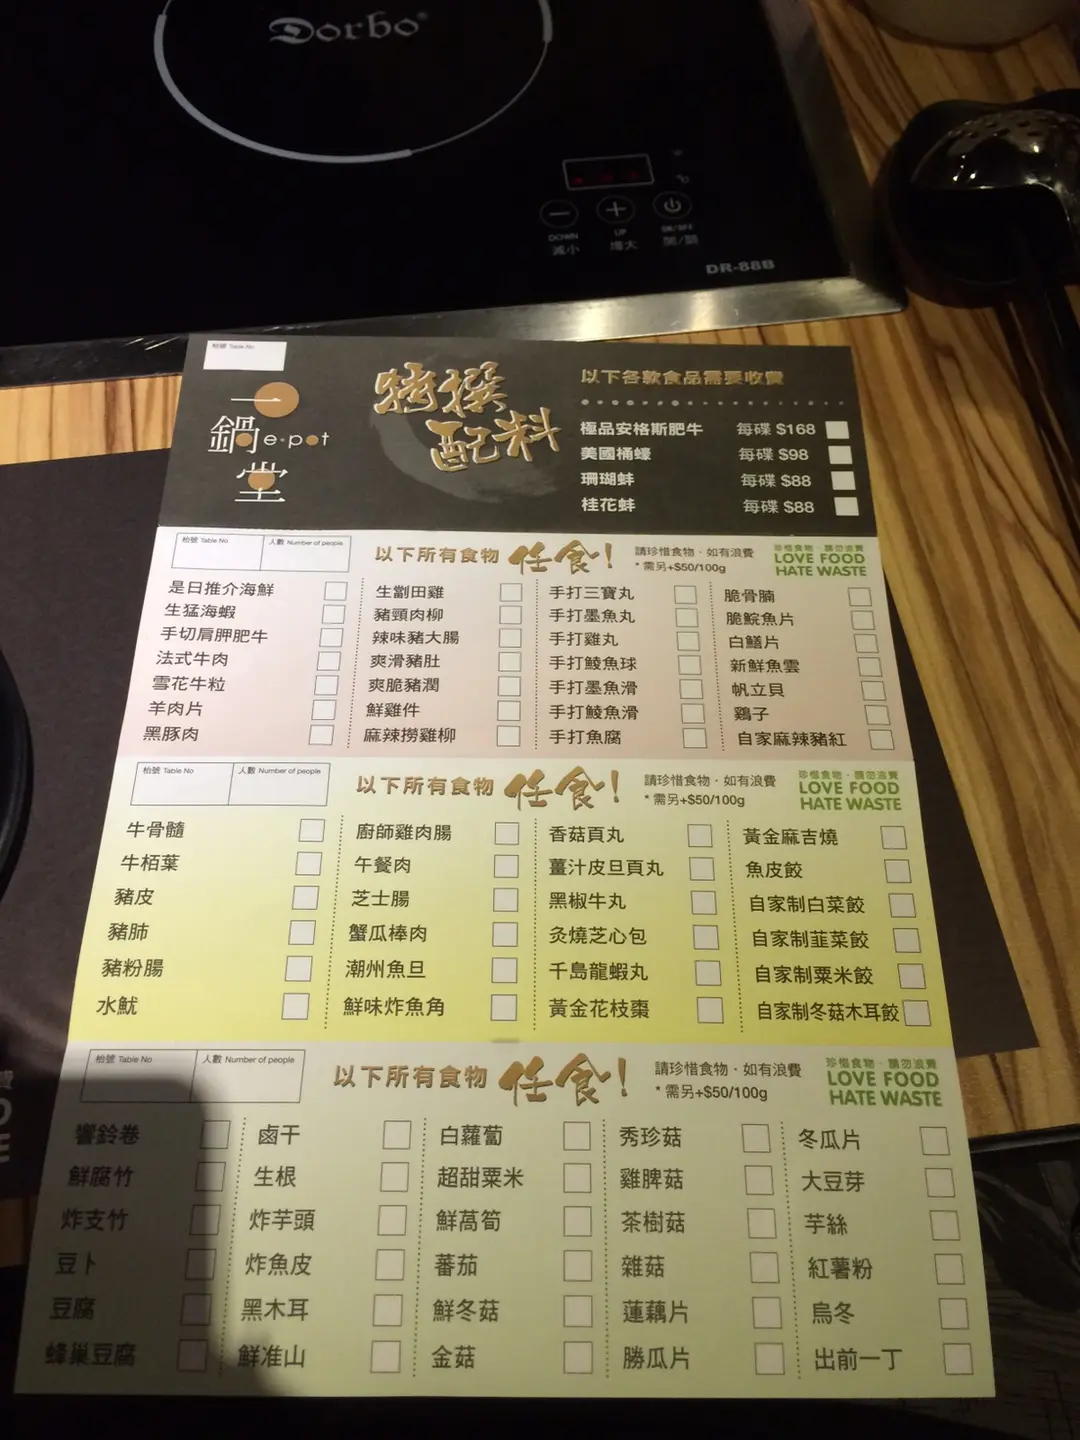 Dorbo
DOWN
減小
UP
增大
ON/OFF
開/關
DR-88B
枱號 Table No
一
鍋 e·pot
堂
特撰
配料
以下各款食品需要收費
極品安格斯肥牛 每碟 $168
美國桶蠔 每碟 $98
珊瑚蚌 每碟 $88
桂花蚌 每碟 $88
枱號 Table No 人數 Number of people
以下所有食物 任食!
請珍惜食物·如有浪費
*需另+$50/100g
珍惜食物·請勿浪費
LOVE FOOD
HATE WASTE
是日推介海鮮
生猛海蝦
手切肩胛肥牛
法式牛肉
雪花牛粒
羊肉片
黑豚肉
生劏田雞
豬頸肉柳
辣味豬大腸
爽滑豬肚
爽脆豬潤
鮮雞件
麻辣撈雞柳
手打三寶丸
手打墨魚丸
手打雞丸
手打鯪魚球
手打墨魚滑
手打鯪魚滑
手打魚腐
脆骨腩
脆鯇魚片
白鱔片
新鮮魚雲
帆立貝
鷄子
自家麻辣豬紅
枱號 Table No 人數 Number of people
以下所有食物 任食!
請珍惜食物·如有浪費
*需另+$50/100g
珍惜食物·請勿浪費
LOVE FOOD
HATE WASTE
牛骨髓
牛栢葉
豬皮
豬肺
豬粉腸
水魷
廚師雞肉腸
午餐肉
芝士腸
蟹瓜棒肉
潮州魚旦
鮮味炸魚角
香菇頁丸
薑汁皮旦頁丸
黑椒牛丸
灸燒芝心包
千島龍蝦丸
黃金花枝棗
黃金麻吉燒
魚皮餃
自家制白菜餃
自家制韮菜餃
自家制粟米餃
自家制冬菇木耳餃
枱號 Table No 人數 Number of people
以下所有食物 任食!
請珍惜食物·如有浪費
*需另+$50/100g
珍惜食物·請勿浪費
LOVE FOOD
HATE WASTE
響鈴卷
鮮腐竹
炸支竹
豆卜
豆腐
蜂巢豆腐
鹵干
生根
炸芋頭
炸魚皮
黑木耳
鮮准山
白蘿蔔
超甜粟米
鮮萵筍
蕃茄
鮮冬菇
金菇
秀珍菇
雞脾菇
茶樹菇
雜菇
蓮藕片
勝瓜片
冬瓜片
大豆芽
芋絲
紅薯粉
烏冬
出前一丁